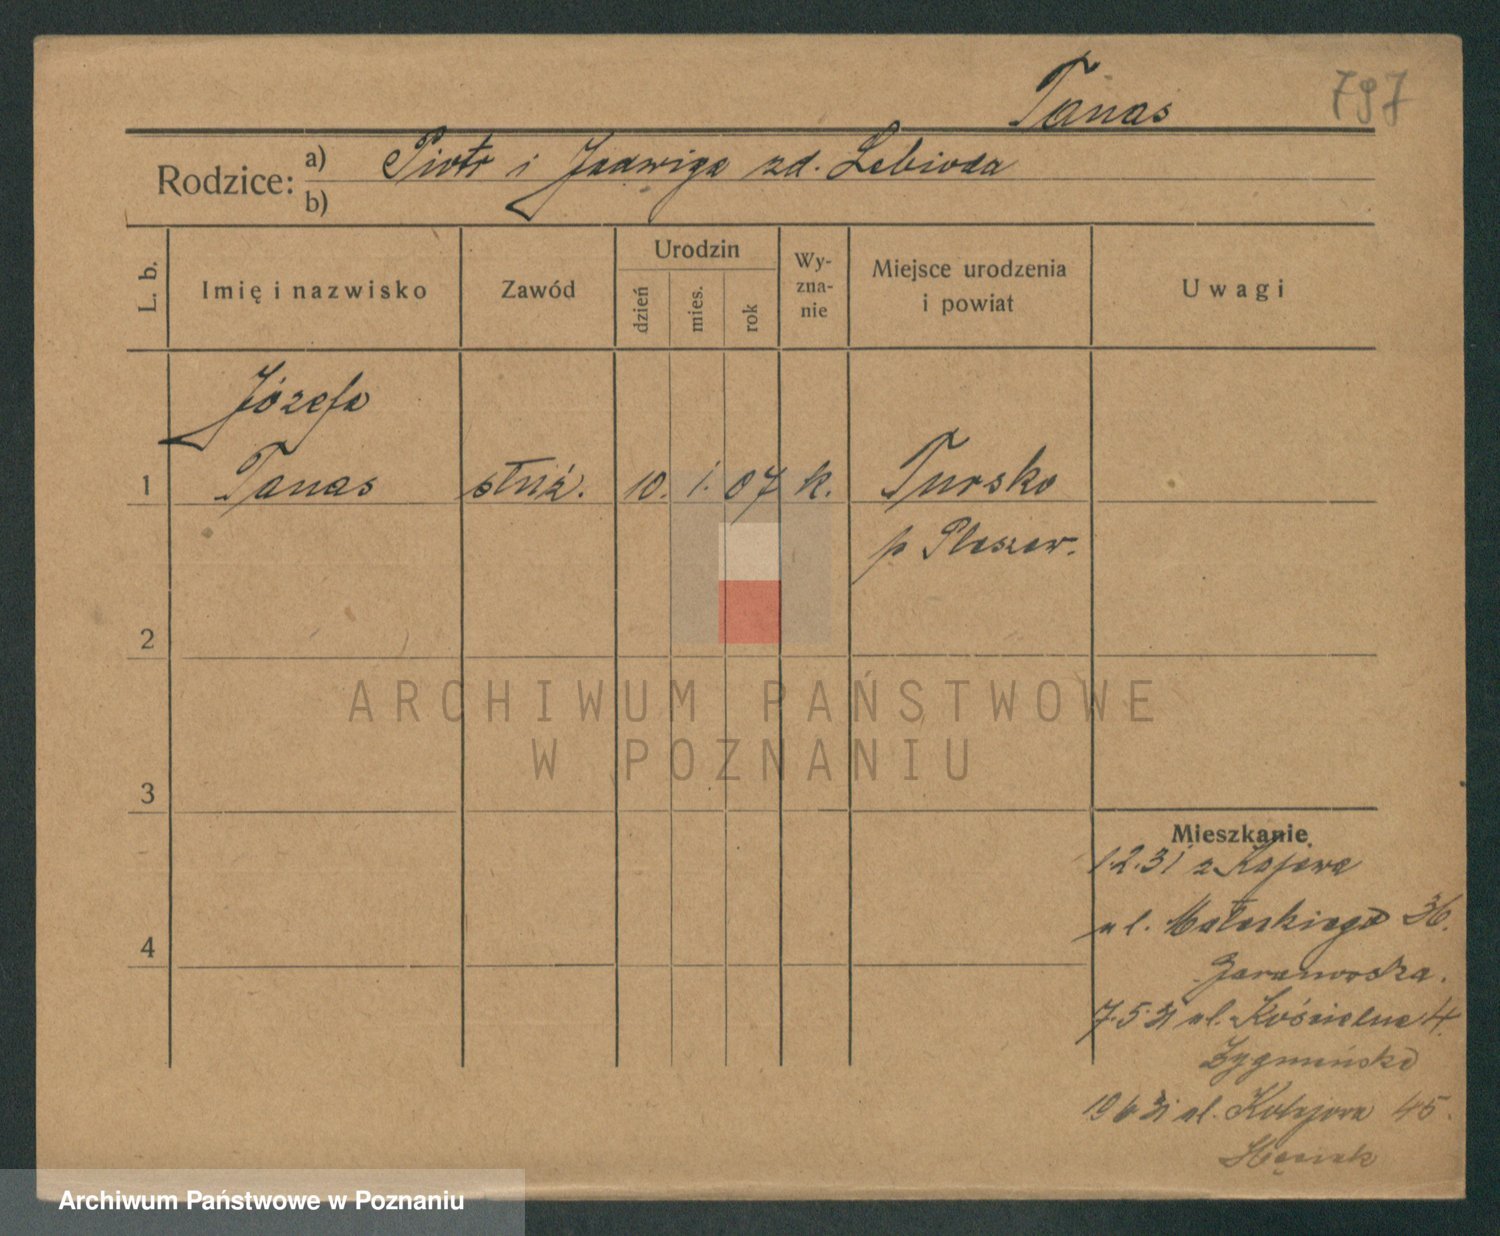 Tanas
797
Rodzice: a) Piotr i Jadwiga zd. Lebioda
b)
L. b.
Imię i nazwisko
Zawód
Urodzin
dzień
mies.
rok
Wy-
zna-
nie
Miejsce urodzenia
i powiat
Uwagi
Józefa
1 Tanas służ. 10. 1. 07 k. Tursko
p Pleszew.
2
ARCHIWUM PAŃSTWOWE
W POZNANIU
3
Mieszkanie
1.2.31 z
ul. Małeckiego 36.
4
7.5.31 ul. Kościelna 4.
19 6 31 ul. Kolejowa 45.
Archiwum Państwowe w Poznaniu